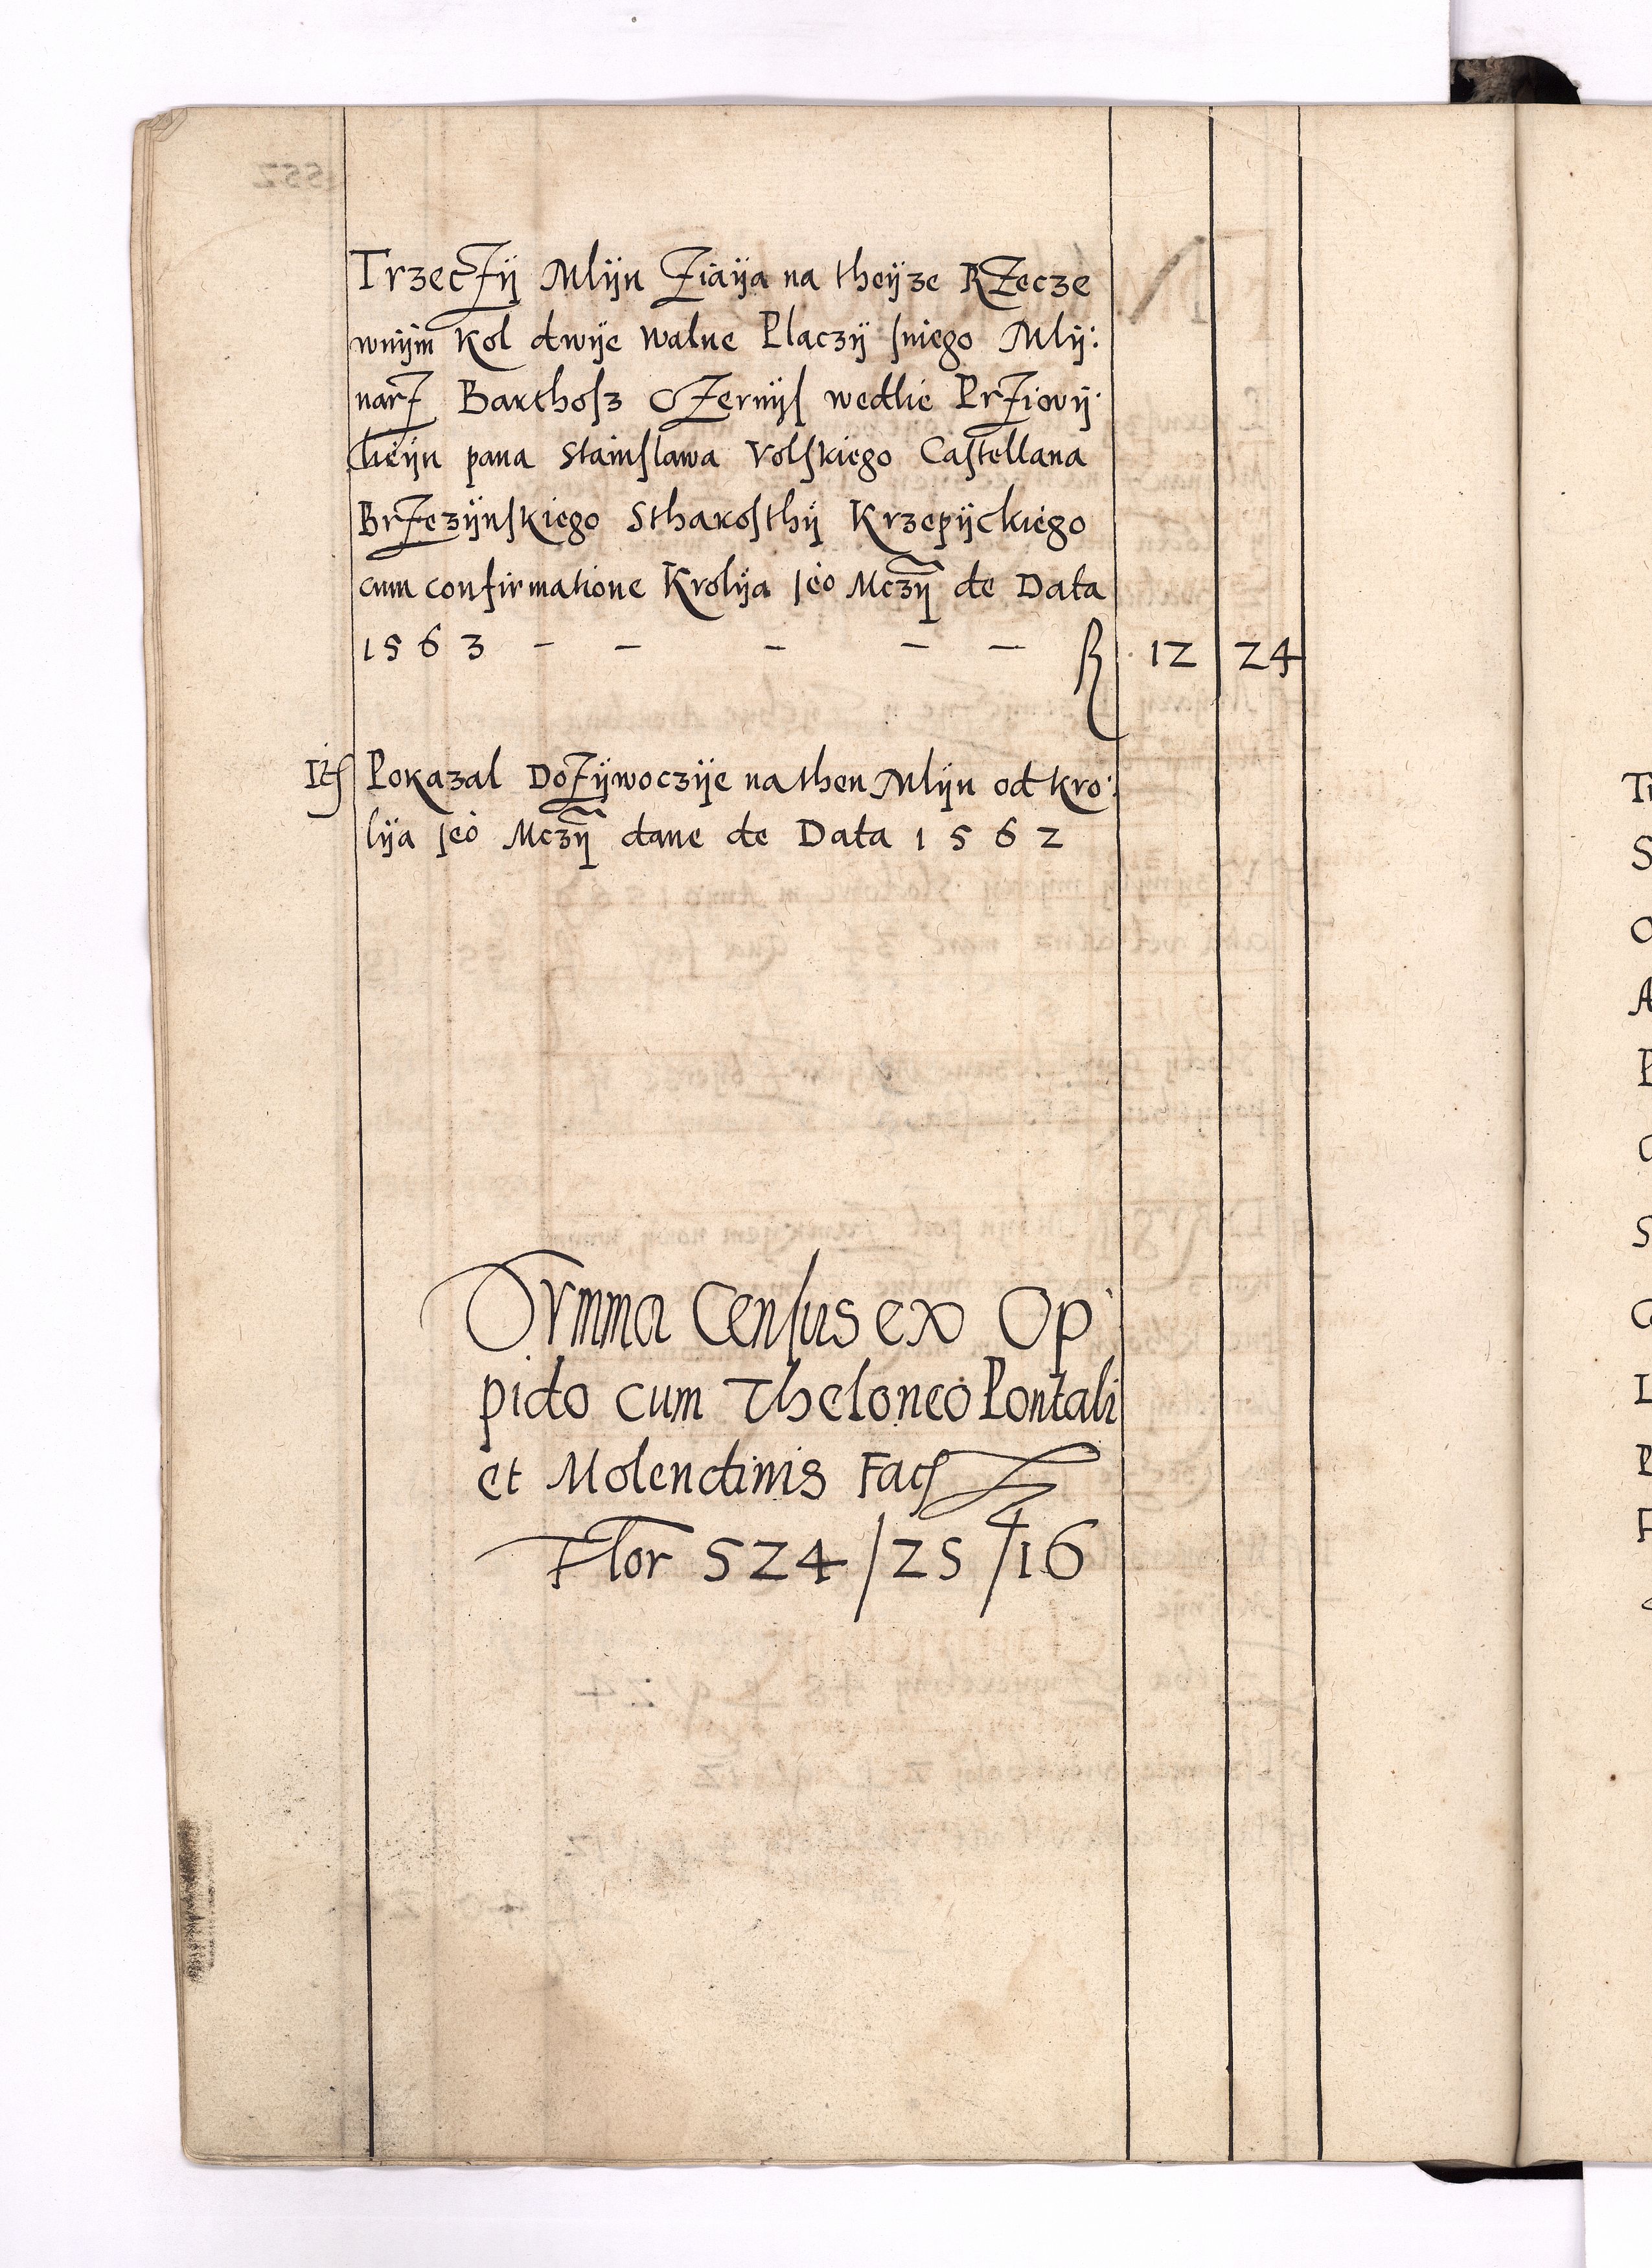 Trzecżÿ Mlÿn Żiaÿa na theÿze Rżecze
wnÿm Kol dwÿe walne Placzÿ sniego Mlÿ:
narż Barthosz Czernÿs wedlie Prżiovÿ:
lieÿu pana Stanislawa Volskiego Castellana
Brżezÿnskiego Stharosthÿ Krzepÿckiego
cum confirmatione Krolÿa Jeo Mczÿ de Data
1563 – – – – – R 12 24
It Pokazal Dożÿwoczÿe na then Mlÿn od Kro:
lÿa Jeo Mczÿ dane de Data 1562
Summa Census ex Op
pido cum Theloneo Pontali
et Molendinis Fac
Flor 524/25/16